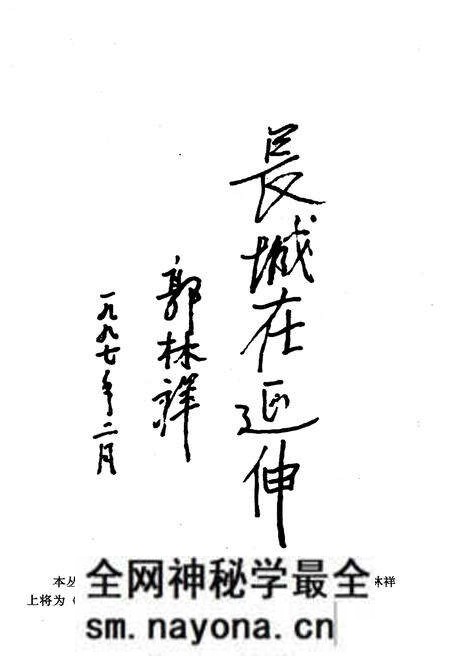 長城在延伸
郭林祥
一九九七年二月
本丛
林祥
上将为《
全网神秘学最全
sm.nayona.cn